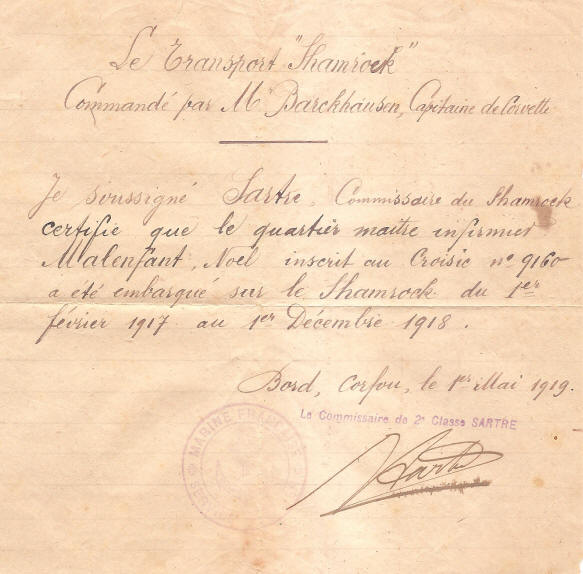 Le Transport "Shamrock"
Commandé par Mr Barckhausen, Capitaine de Corvette
Je soussigné Sartre, Commissaire du Shamrock
certifie que le quartier maître infirmier
Malenfant, Noël inscrit au Croisic no 9160
a été embarqué sur le Shamrock du 1er
février 1917 au 1er Décembre 1918.
Bord, Corfou, le 1er Mai 1919.
Le Commissaire de 2e Classe SARTRE
MARINE FRANÇAISE
Sartre